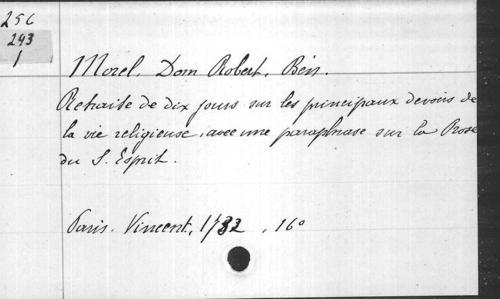 25C
243
1
Morel, Dom Robert, Bén.
Retraite de dix jours sur les principaux devoirs de
la vie religieuse, avec une paraphrase sur la Prose
du S. Esprit.
Paris. Vincent, 1732, 16°